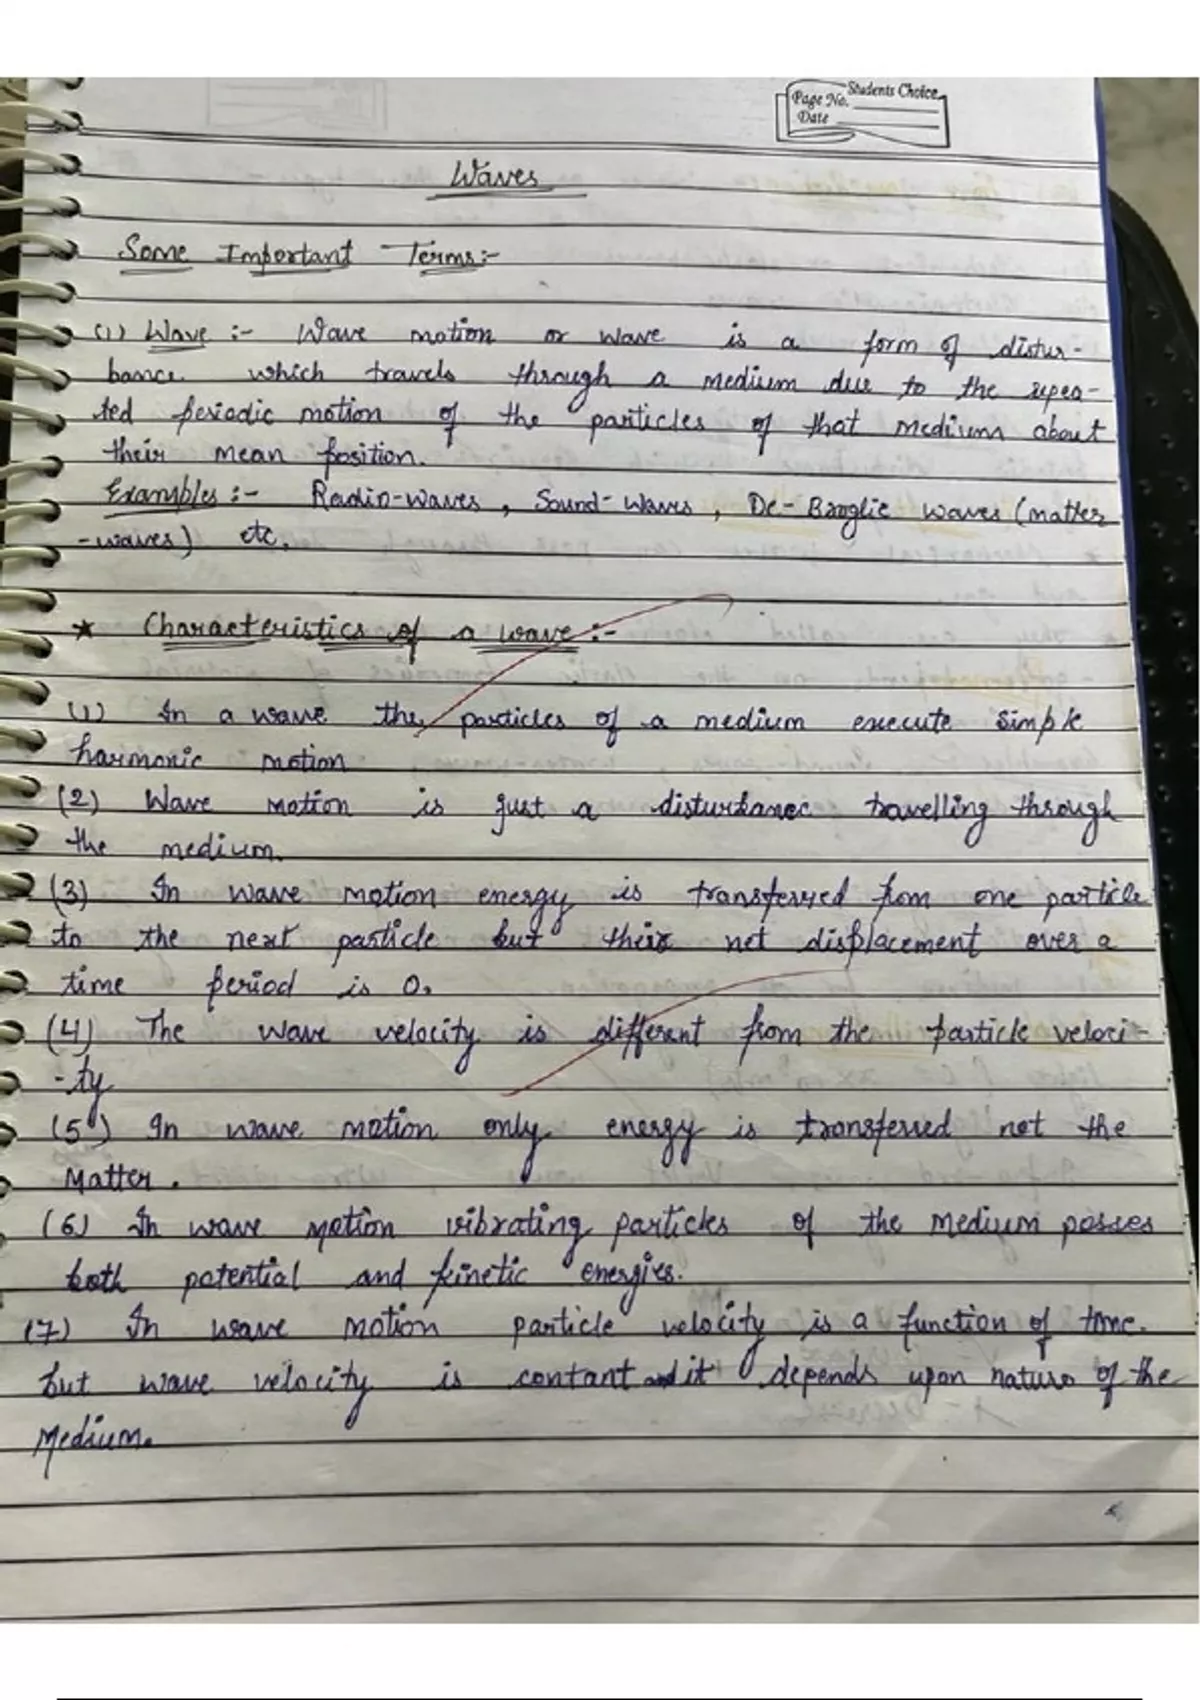 Students Choice
Page No.
Date
Waves
Some Important Terms:-
(1) Wave :- Wave motion or wave is a form of distur-
bance which travels through a medium due to the repea-
ted periodic motion of the particles of that medium about
their mean position.
Examples :- Radio-waves, Sound-waves, De-Broglie waves (matter
-waves) etc.
* Characteristics of a wave :-
(1) In a wave the particles of a medium execute simple
harmonic motion
(2) Wave motion is just a disturbance travelling through
the medium.
(3) In wave motion energy is transferred from one particle
to the next particle but their net displacement over a
time period is 0.
(4) The wave velocity is different from the particle veloci-
-ty
(5) In wave motion only energy is transferred not the
Matter.
(6) In wave motion vibrating particles of the medium posses
both potential and kinetic energies.
(7) In wave motion particle velocity is a function of time.
but wave velocity is contant and it depends upon nature of the
Medium.